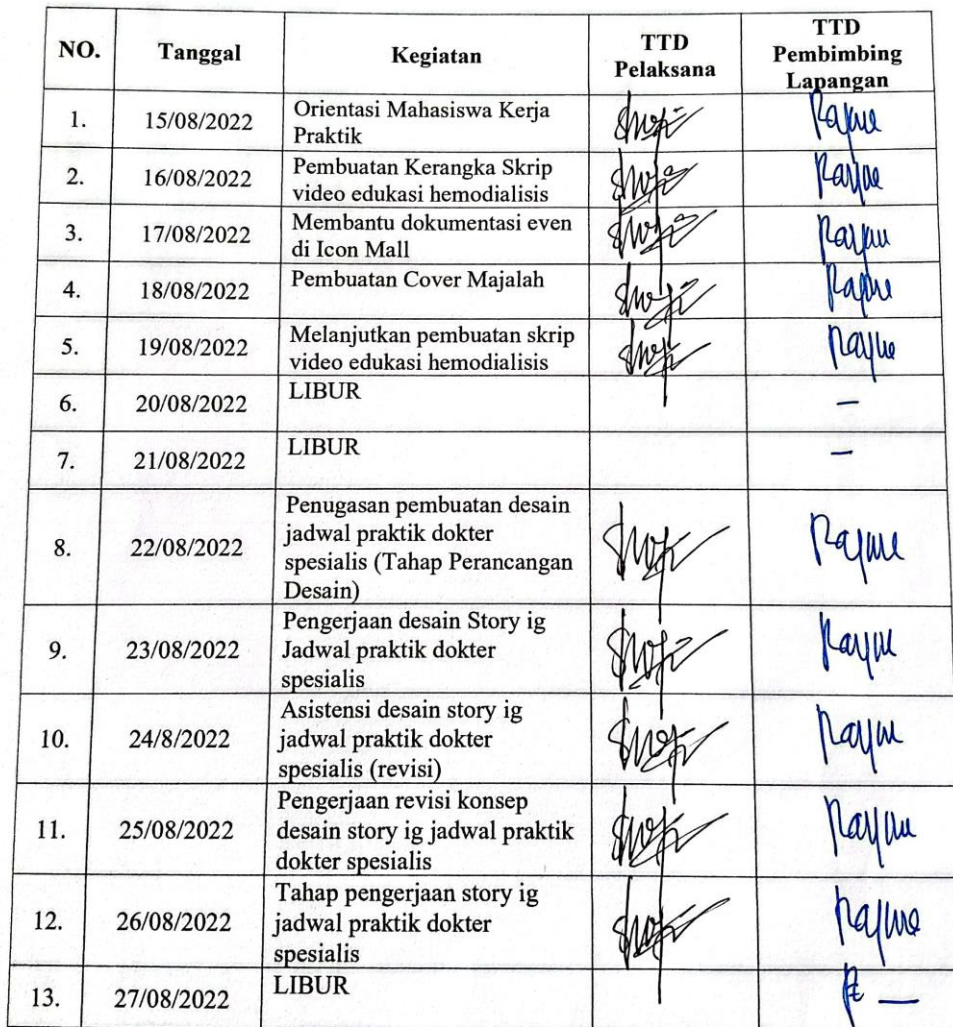 NO.
Tanggal
Kegiatan
TTD
Pelaksana
TTD
Pembimbing
Lapangan
1.
15/08/2022
Orientasi Mahasiswa Kerja
Praktik
2.
16/08/2022
Pembuatan Kerangka Skrip
video edukasi hemodialisis
3.
17/08/2022
Membantu dokumentasi even
di Icon Mall
4.
18/08/2022
Pembuatan Cover Majalah
5.
19/08/2022
Melanjutkan pembuatan skrip
video edukasi hemodialisis
6.
20/08/2022
LIBUR
–
7.
21/08/2022
LIBUR
–
8.
22/08/2022
Penugasan pembuatan desain
jadwal praktik dokter
spesialis (Tahap Perancangan
Desain)
9.
23/08/2022
Pengerjaan desain Story ig
Jadwal praktik dokter
spesialis
10.
24/8/2022
Asistensi desain story ig
jadwal praktik dokter
spesialis (revisi)
11.
25/08/2022
Pengerjaan revisi konsep
desain story ig jadwal praktik
dokter spesialis
12.
26/08/2022
Tahap pengerjaan story ig
jadwal praktik dokter
spesialis
13.
27/08/2022
LIBUR
–